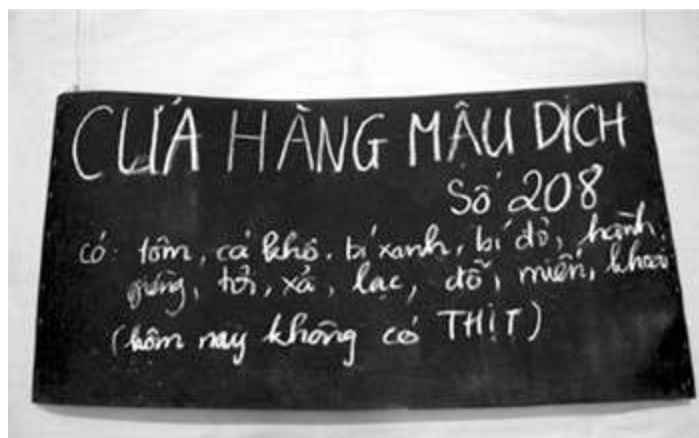 CỬA HÀNG MẬU DỊCH
Số 208
có: tôm, cá khô, bí xanh, bí đỏ, hành,
giềng, tỏi, xả, lạc, đỗ, miến, khoai
(hôm nay không có THỊT)